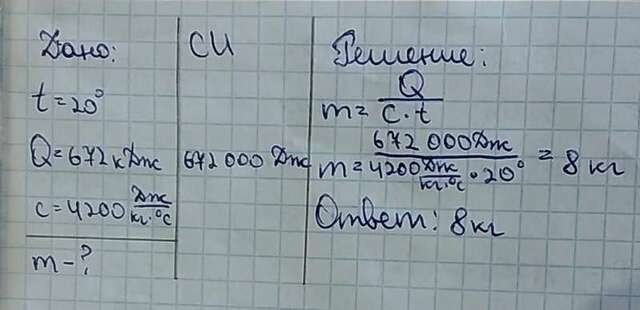 Дано:
t = 20°
Q = 672 кДж
c = 4200 Дж/кг·°С
m - ?
СИ
672 000 Дж
Решение:
m = Q/c·t
m = 672 000 Дж/4200 Дж/кг·°С · 20° = 8 кг
Ответ: 8 кг